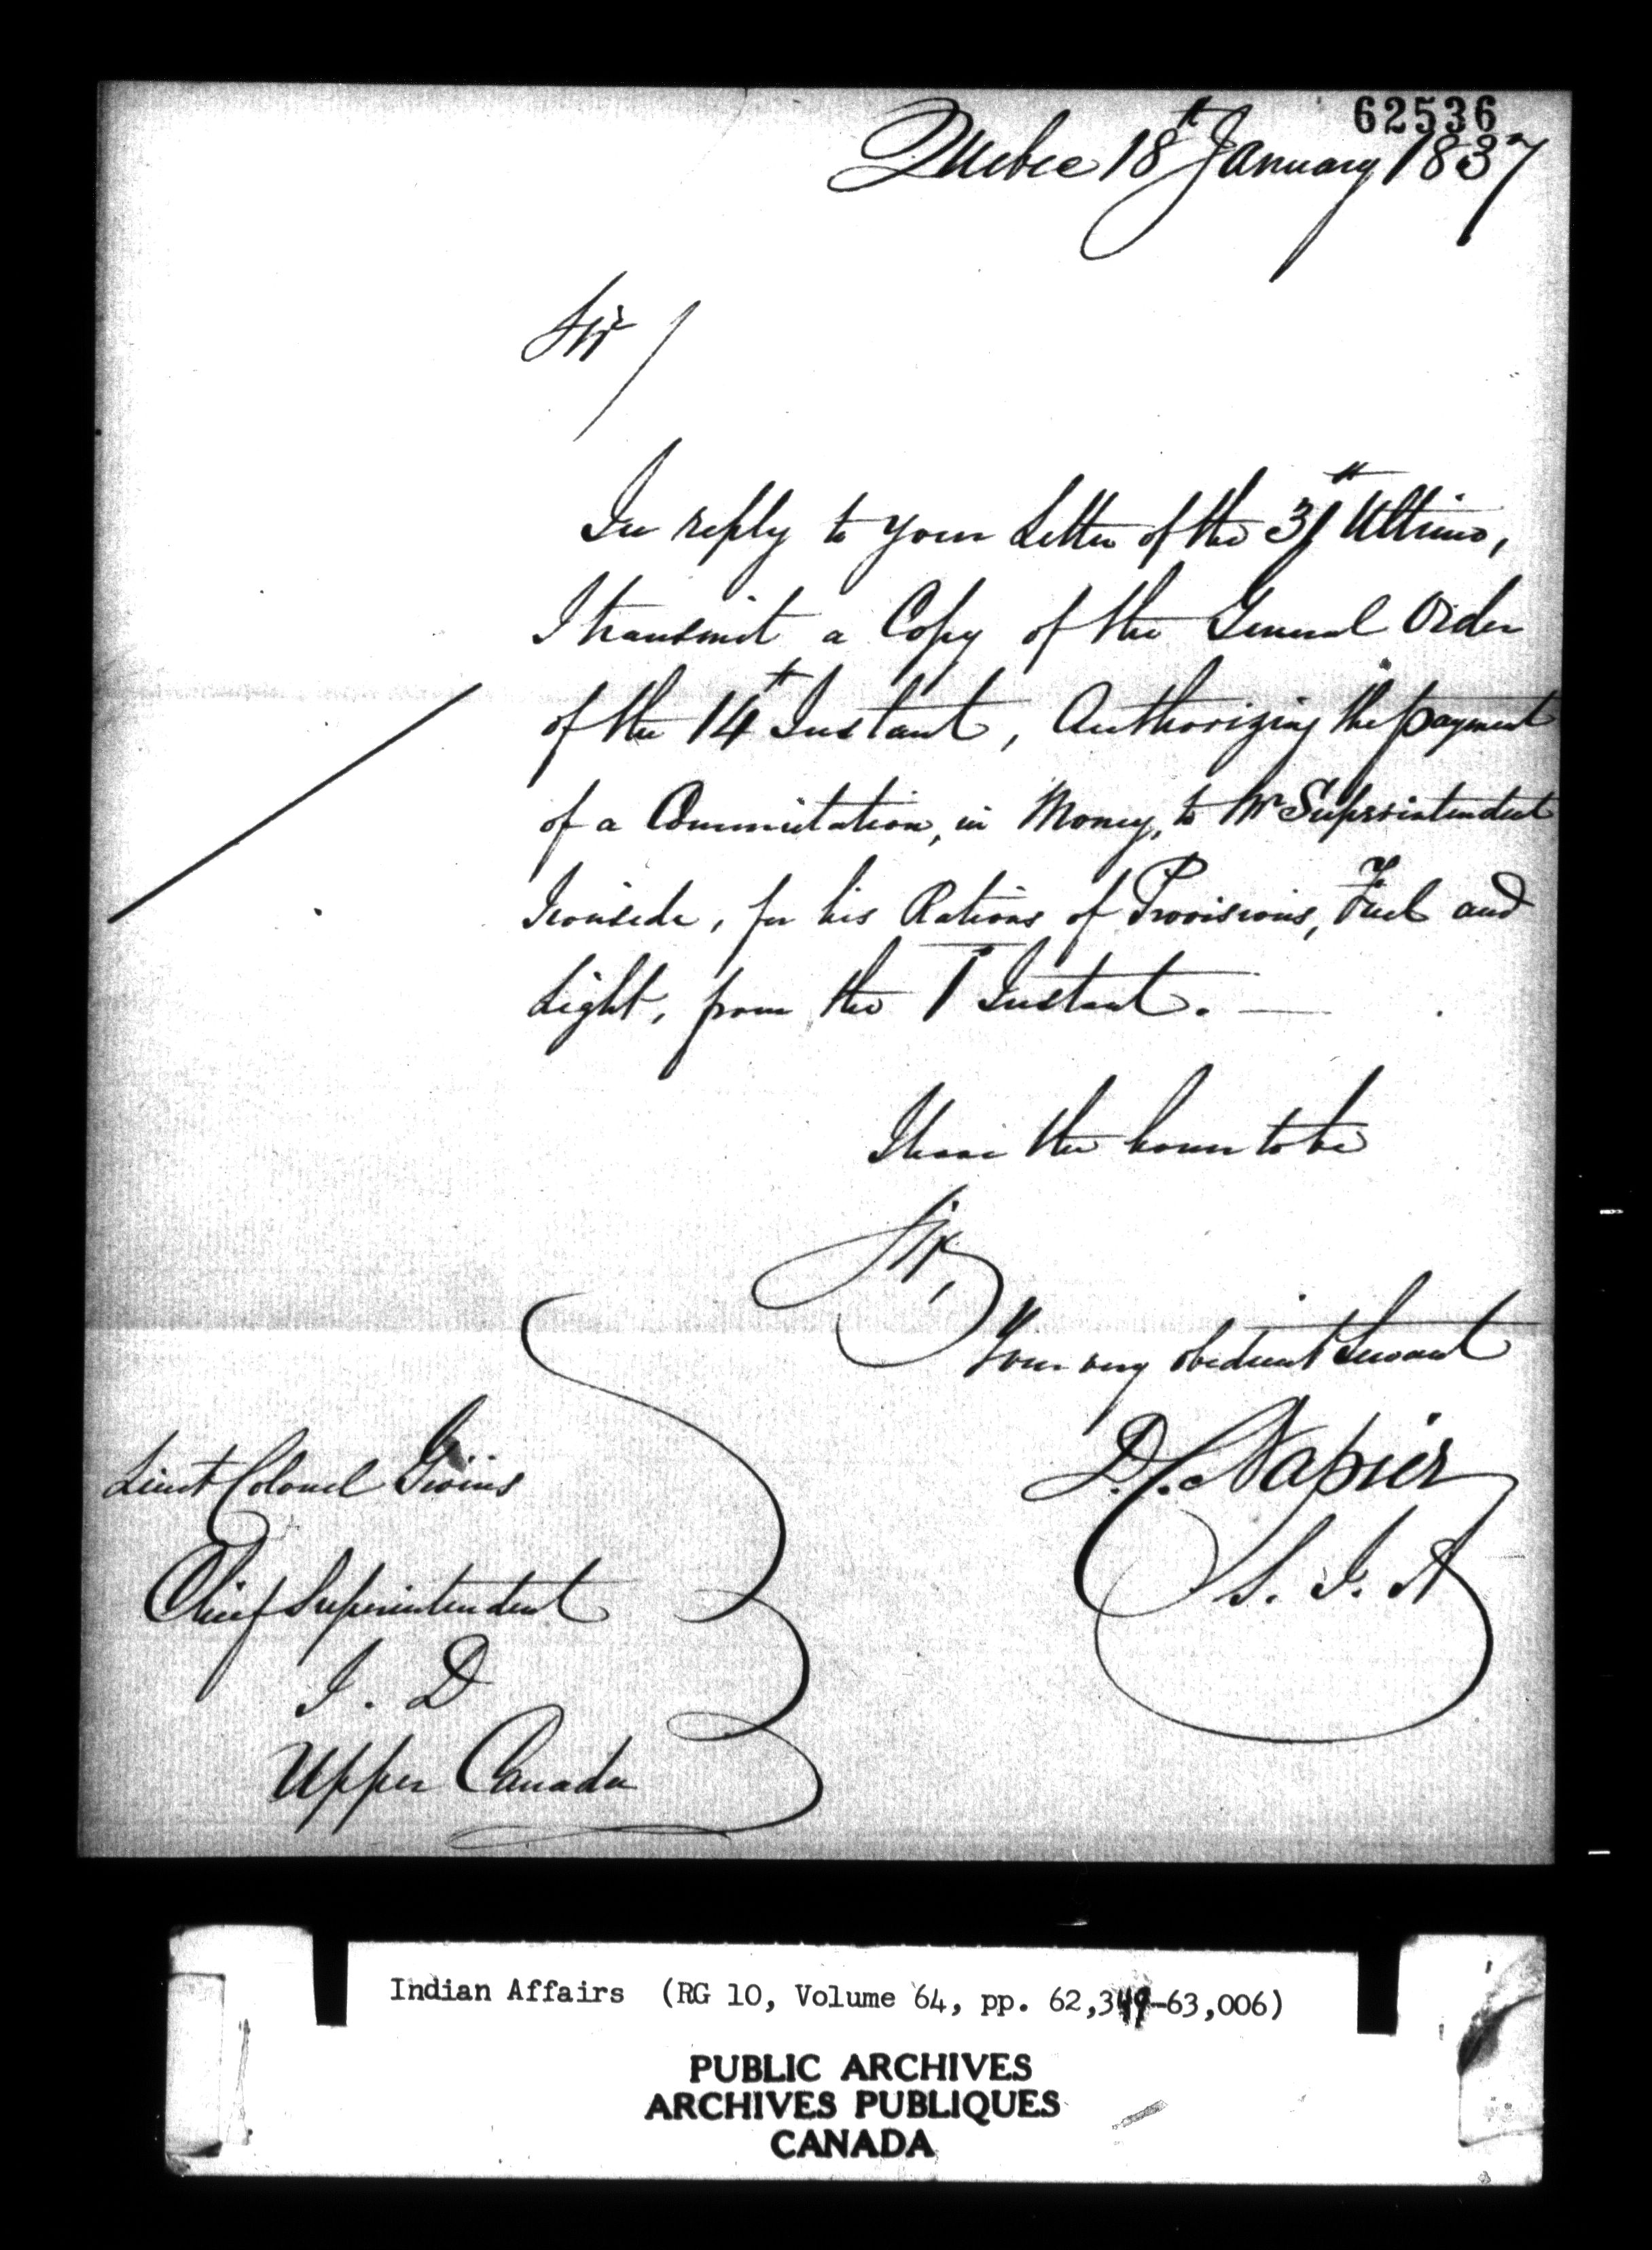 62536
Quebec 18th January 1837
Sir /
In reply to your Letter of the 31th Ultimo,
I transmit a Copy of the General Order
of the 14th Instant, Authorizing the payment
of a Commutation, in Money, to Mr Superintendent
Ironside, for his Rations of Provisions, Fuel and
Light, from the 1 Instant. —
I have the honor to be
Sir,
Your very obedient Servant
D. C. Napier
S. I. A
Lieut Colonel Givins
Chief Superintendent
I. D
Upper Canada
Indian Affairs (RG 10, Volume 64, pp. 62,349-63,006)
PUBLIC ARCHIVES
ARCHIVES PUBLIQUES
CANADA